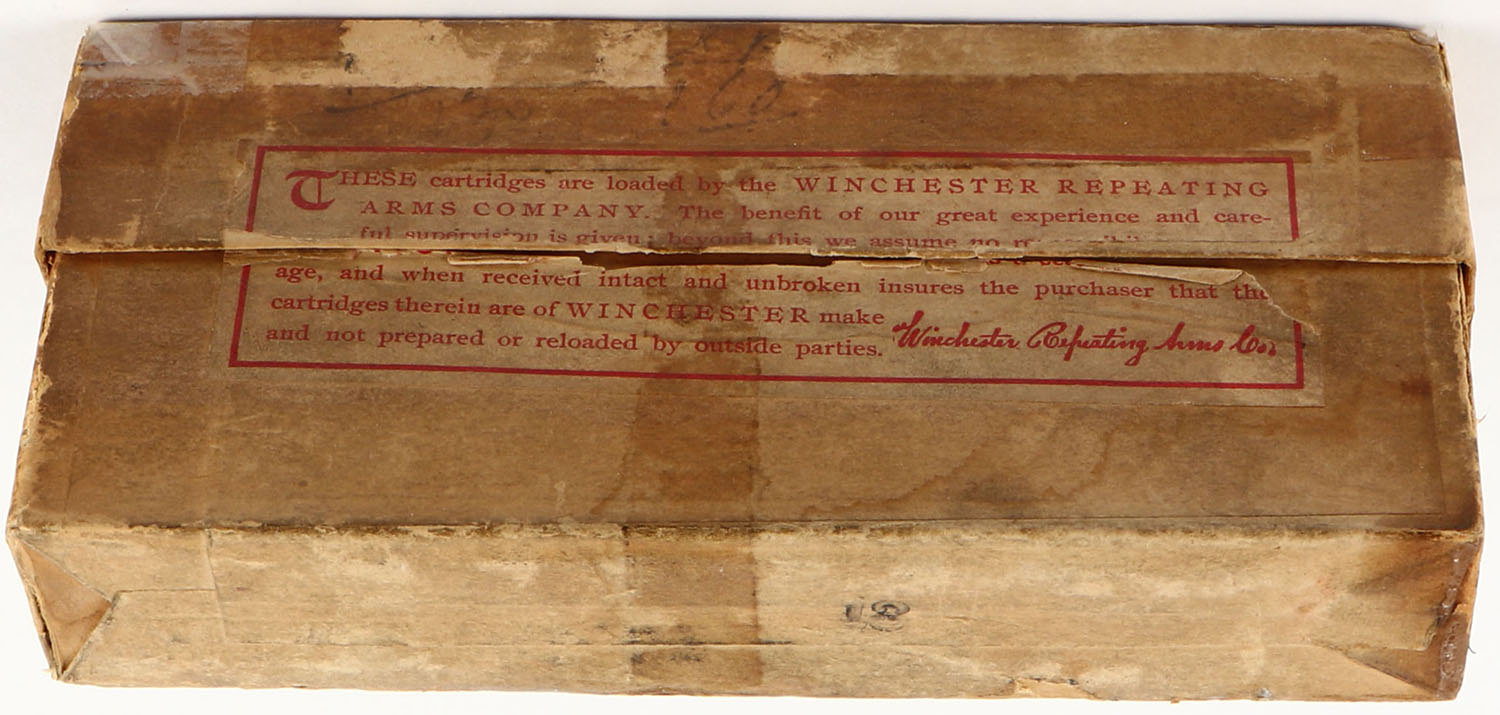 160
THESE cartridges are loaded by the WINCHESTER REPEATING
ARMS COMPANY. The benefit of our great experience and care-
ful supervision is given; beyond this we assume no
age, and when received intact and unbroken insures the purchaser that the
cartridges therein are of WINCHESTER make
and not prepared or reloaded by outside parties. Winchester Repeating Arms Co.